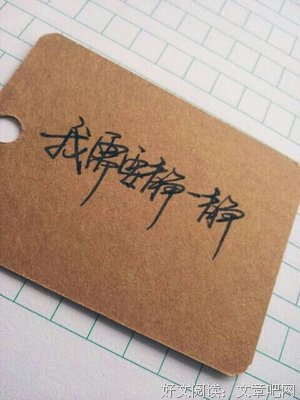 我需要静一静
好文阅读：文章吧网